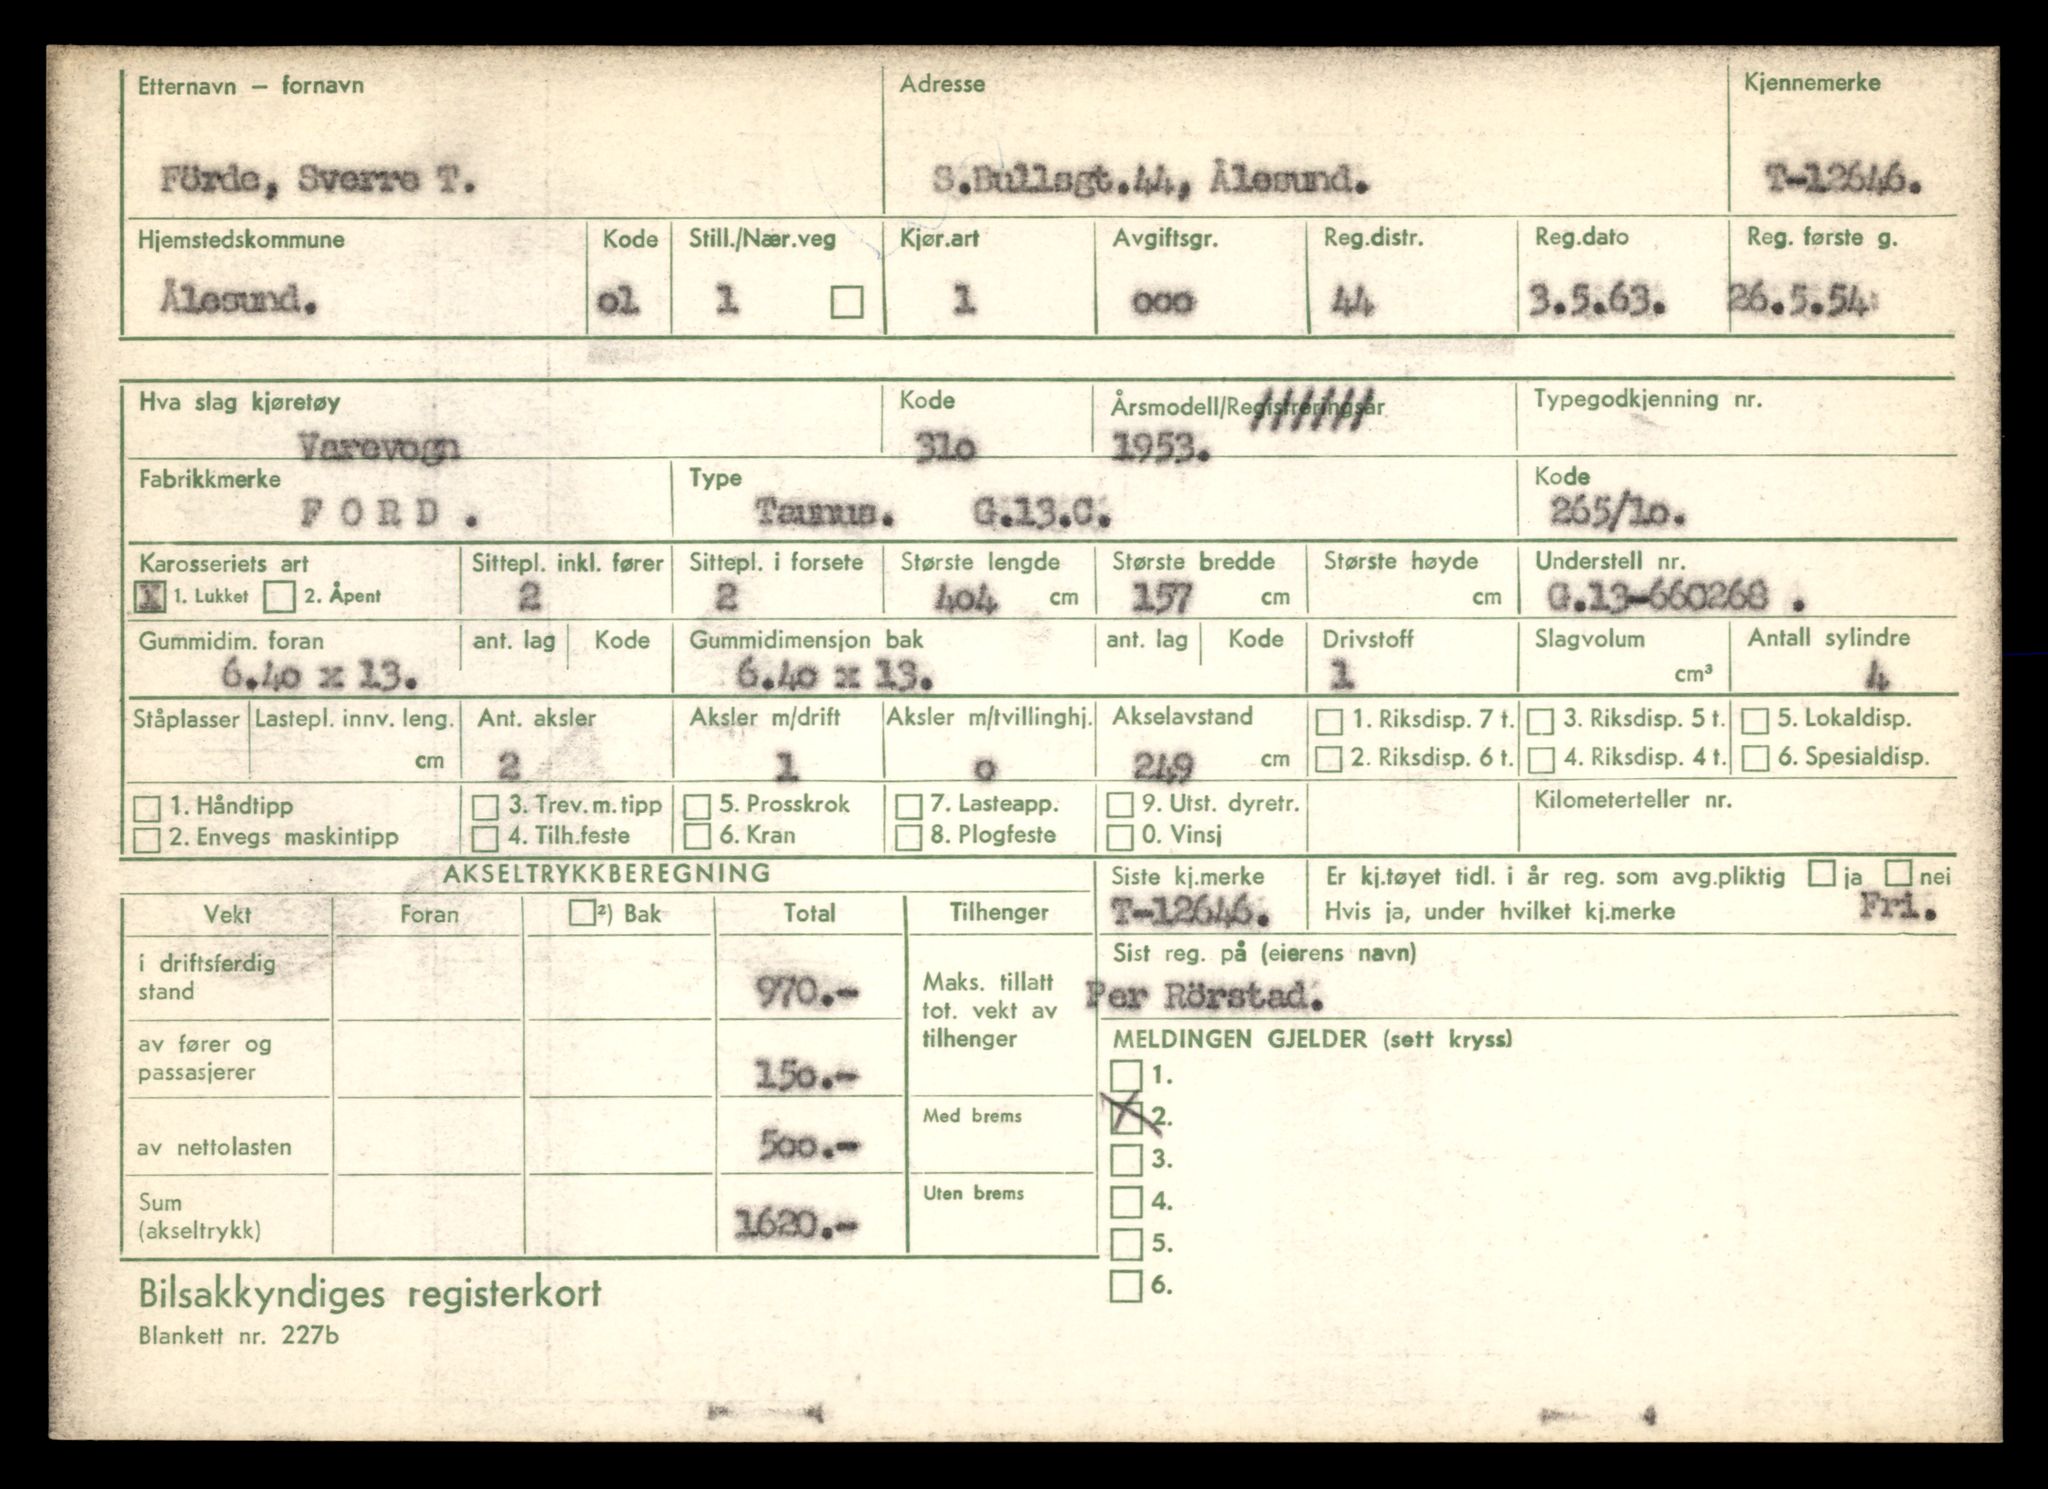 Etternavn – fornavn Adresse Kjennemerke
Förde, Sverre T. S.Bullsgt.44, Ålesund. T-12646.
Hjemstedskommune Kode Still./Nær.veg Kjør.art Avgiftsgr. Reg.distr. Reg.dato Reg. første g.
Ålesund. o1 1 1 ooo 44 3.5.63. 26.5.54
Hva slag kjøretøy Kode Årsmodell/Registreringsår Typegodkjenning nr.
Varevogn 31o 1953.
Fabrikkmerke Type Kode
F O R D . Taunus. G.13.C. 265/1o.
Karosseriets art Sittepl. inkl. fører Sittepl. i forsete Største lengde Største bredde Største høyde Understell nr.
X 1. Lukket 2. Åpent 2 2 4o4 cm 157 cm cm G.13-660268 .
Gummidim. foran ant. lag Kode Gummidimensjon bak ant. lag Kode Drivstoff Slagvolum Antall sylindre
6.4o x 13. 6.4o x 13. 1 cm³ 4
Ståplasser Lastepl. innv. leng. Ant. aksler Aksler m/drift Aksler m/tvillinghj. Akselavstand 1. Riksdisp. 7 t. 3. Riksdisp. 5 t. 5. Lokaldisp.
cm 2 1 o 249 cm 2. Riksdisp. 6 t. 4. Riksdisp. 4 t. 6. Spesialdisp.
1. Håndtipp 3. Trev. m. tipp 5. Prosskrok 7. Lasteapp. 9. Utst. dyretr. Kilometerteller nr.
2. Envegs maskintipp 4. Tilh.feste 6. Kran 8. Plogfeste 0. Vinsj
AKSELTRYKKBEREGNING Siste kj.merke Er kj.tøyet tidl. i år reg. som avg.pliktig ja nei
Vekt Foran ²) Bak Total Tilhenger T-12646. Hvis ja, under hvilket kj.merke Fri.
i driftsferdig stand 970.- Maks. tillatt tot. vekt av tilhenger
Sist reg. på (eierens navn)
Per Rörstad.
av fører og passasjerer 15o.-
MELDINGEN GJELDER (sett kryss)
1.
X 2.
3.
4.
5.
6.
av nettolasten 5oo.- Med brems
Sum (akseltrykk) 1620.- Uten brems
Bilsakkyndiges registerkort
Blankett nr. 227b